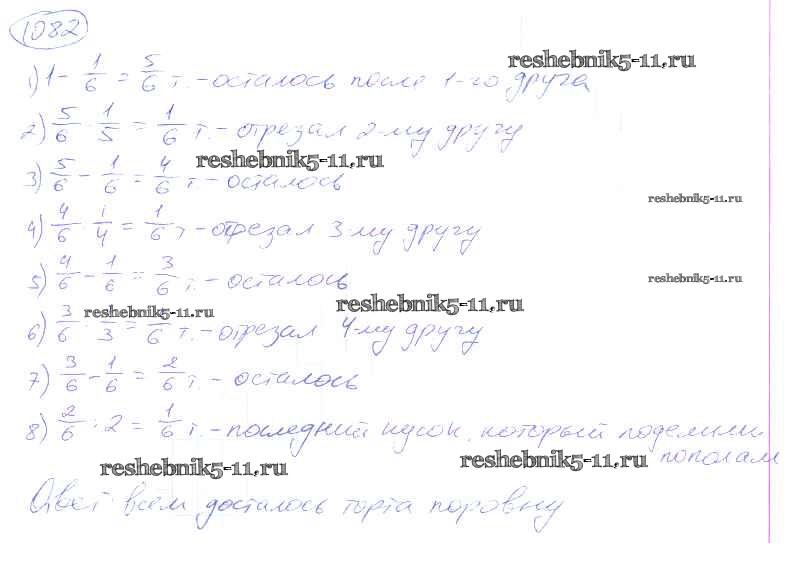 1082
reshebnik5-11.ru
1) 1 - 1/6 = 5/6 т. - осталось после 1-го друга
2) 5/6 · 1/5 = 1/6 т. - отрезал 2-му другу
reshebnik5-11.ru
3) 5/6 - 1/6 = 4/6 т - осталось
reshebnik5-11.ru
4) 4/6 · 1/4 = 1/6 т - отрезал 3-му другу
5) 4/6 - 1/6 = 3/6 т. - осталось
reshebnik5-11.ru
reshebnik5-11.ru
reshebnik5-11.ru
6) 3/6 · /3 = /6 т. - отрезал 4-му другу
7) 3/6 - 1/6 = 2/6 т - осталось
8) 2/6 : 2 = 1/6 т. - последний кусок, который поделили
пополам
reshebnik5-11.ru
reshebnik5-11.ru
Ответ всем досталось торта поровну